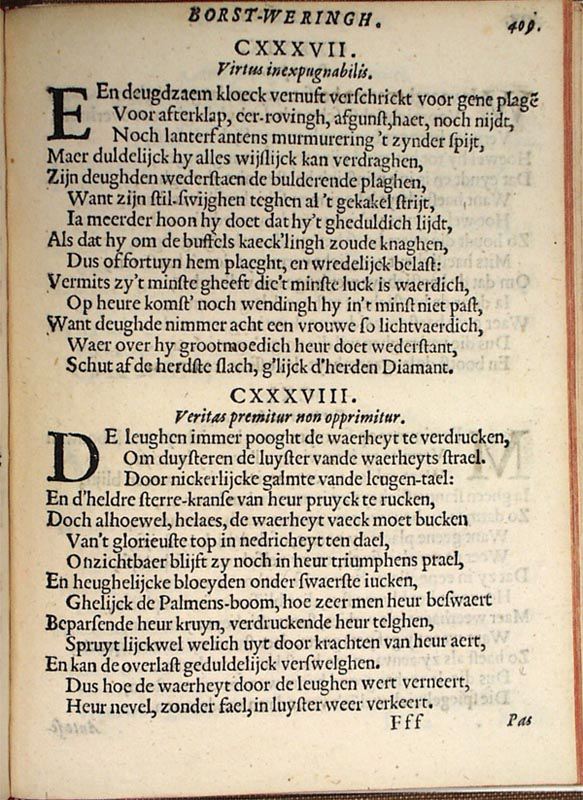 BORST-WERINGH. 409.
CXXXVII.
Virtus inexpugnabilis.
EEn deugdzaem kloeck vernuft verschrickt voor gene plagē
Voor afterklap, eer-rovingh, afgunst, haet, noch nijdt,
Noch lanterfantens murmurering 't zynder spijt,
Maer duldelijck hy alles wijslijck kan verdraghen,
Zijn deughden wederstaen de bulderende plaghen,
Want zijn stil-swijghen teghen al 't gekakel strijt,
Ia meerder hoon hy doet dat hy't gheduldich lijdt,
Als dat hy om de buffels kaeck'lingh zoude knaghen,
Dus of fortuyn hem plaeght, en wredelijck belast:
Vermits zy't minste gheeft die't minste luck is waerdich,
Op heure komst' noch wendingh hy in't minst niet past,
Want deughde nimmer acht een vrouwe so lichtvaerdich,
Waer over hy grootmoedich heur doet wederstant,
Schut af de herdste slach, g'lijck d'herden Diamant.
CXXXVIII.
Veritas premitur non opprimitur.
DE leughen immer pooght de waerheyt te verdrucken,
Om duysteren de luyster vande waerheyts strael.
Door nickerlijcke galmte vande leugen-tael:
En d'heldre sterre-kranse van heur pruyck te rucken,
Doch alhoewel, helaes, de waerheyt vaeck moet bucken
Van't glorieuste top in nedricheyt en dael,
Onzichtbaer blijft zy noch in heur triumphens prael,
En heughelijcke bloeyden onder swaerste iucken,
Ghelijck de Palmens-boom, hoe zeer men heur beswaert
Beparsende heur kruyn, verdruckende heur telghen,
Spruyt lijckwel welich uyt door krachten van heur aert,
En kan de overlast geduldelijck verswelghen.
Dus hoe de waerheyt door de leughen wert verneert,
Heur nevel, zonder fael, in luyster weer verkeert.
Fff Pas